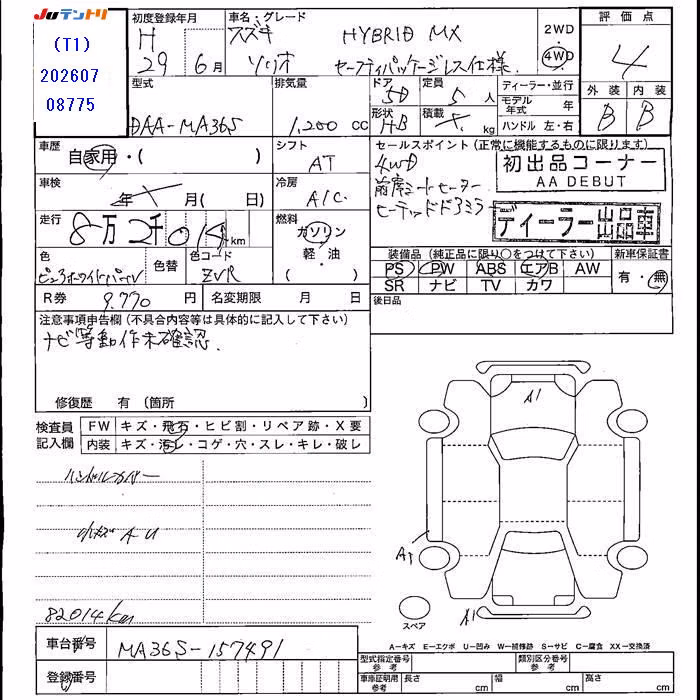 Juテントリ
(T1)
202607
08775
初度登録年月
H
29年 6月
車名・グレード
スズキ HYBRID MX
ソリオ セーフティパッケージレス仕様.
2WD
・
4WD
評価点
4
外装 内装
B B
型式
DAA-MA36S
排気量
1,200 cc
ドア 5D
定員 5人
形状 HB
積載 kg
ディーラー・並行
モデル年式 年
ハンドル 左・右
車歴
自家用・( )
シフト
AT
車検
年 月( 日)
冷房
A/C.
走行
8万2千014km
燃料
ガソリン
軽・油
( )
色
ピュアホワイトパール
色替
色コード
ZVR
R券 9,770 円
名変期限 月 日
セールスポイント(正常に機能するものに限ります)
4WD
前席シートヒーター
ヒーテッドドアミラー
初出品コーナー
AA DEBUT
ディーラー出品車
装備品(純正品に限り○をつけて下さい)
PS PW ABS エアB AW
SR ナビ TV カワ
新車保証書
有・無
後日品
注意事項申告欄(不具合内容等は具体的に記入して下さい)
ナビ等動作未確認.
修復歴 有(箇所 )
検査員
記入欄
FW キズ・飛石・ヒビ割・リペア跡・X要
内装 キズ・汚レ・コゲ・穴・スレ・キレ・破レ
ハンドルカバー
小キズ A U
82014km
A1
A1
A1
スペア
車台番号 MA36S-157491
登録番号
A-キズ E-エクボ U-凹み W-補修跡 S-サビ C-腐食 XX-交換済
型式指定番号
参考
類別区分番号
参考
車庫証明用
参考
長さ cm
幅 cm
高さ cm